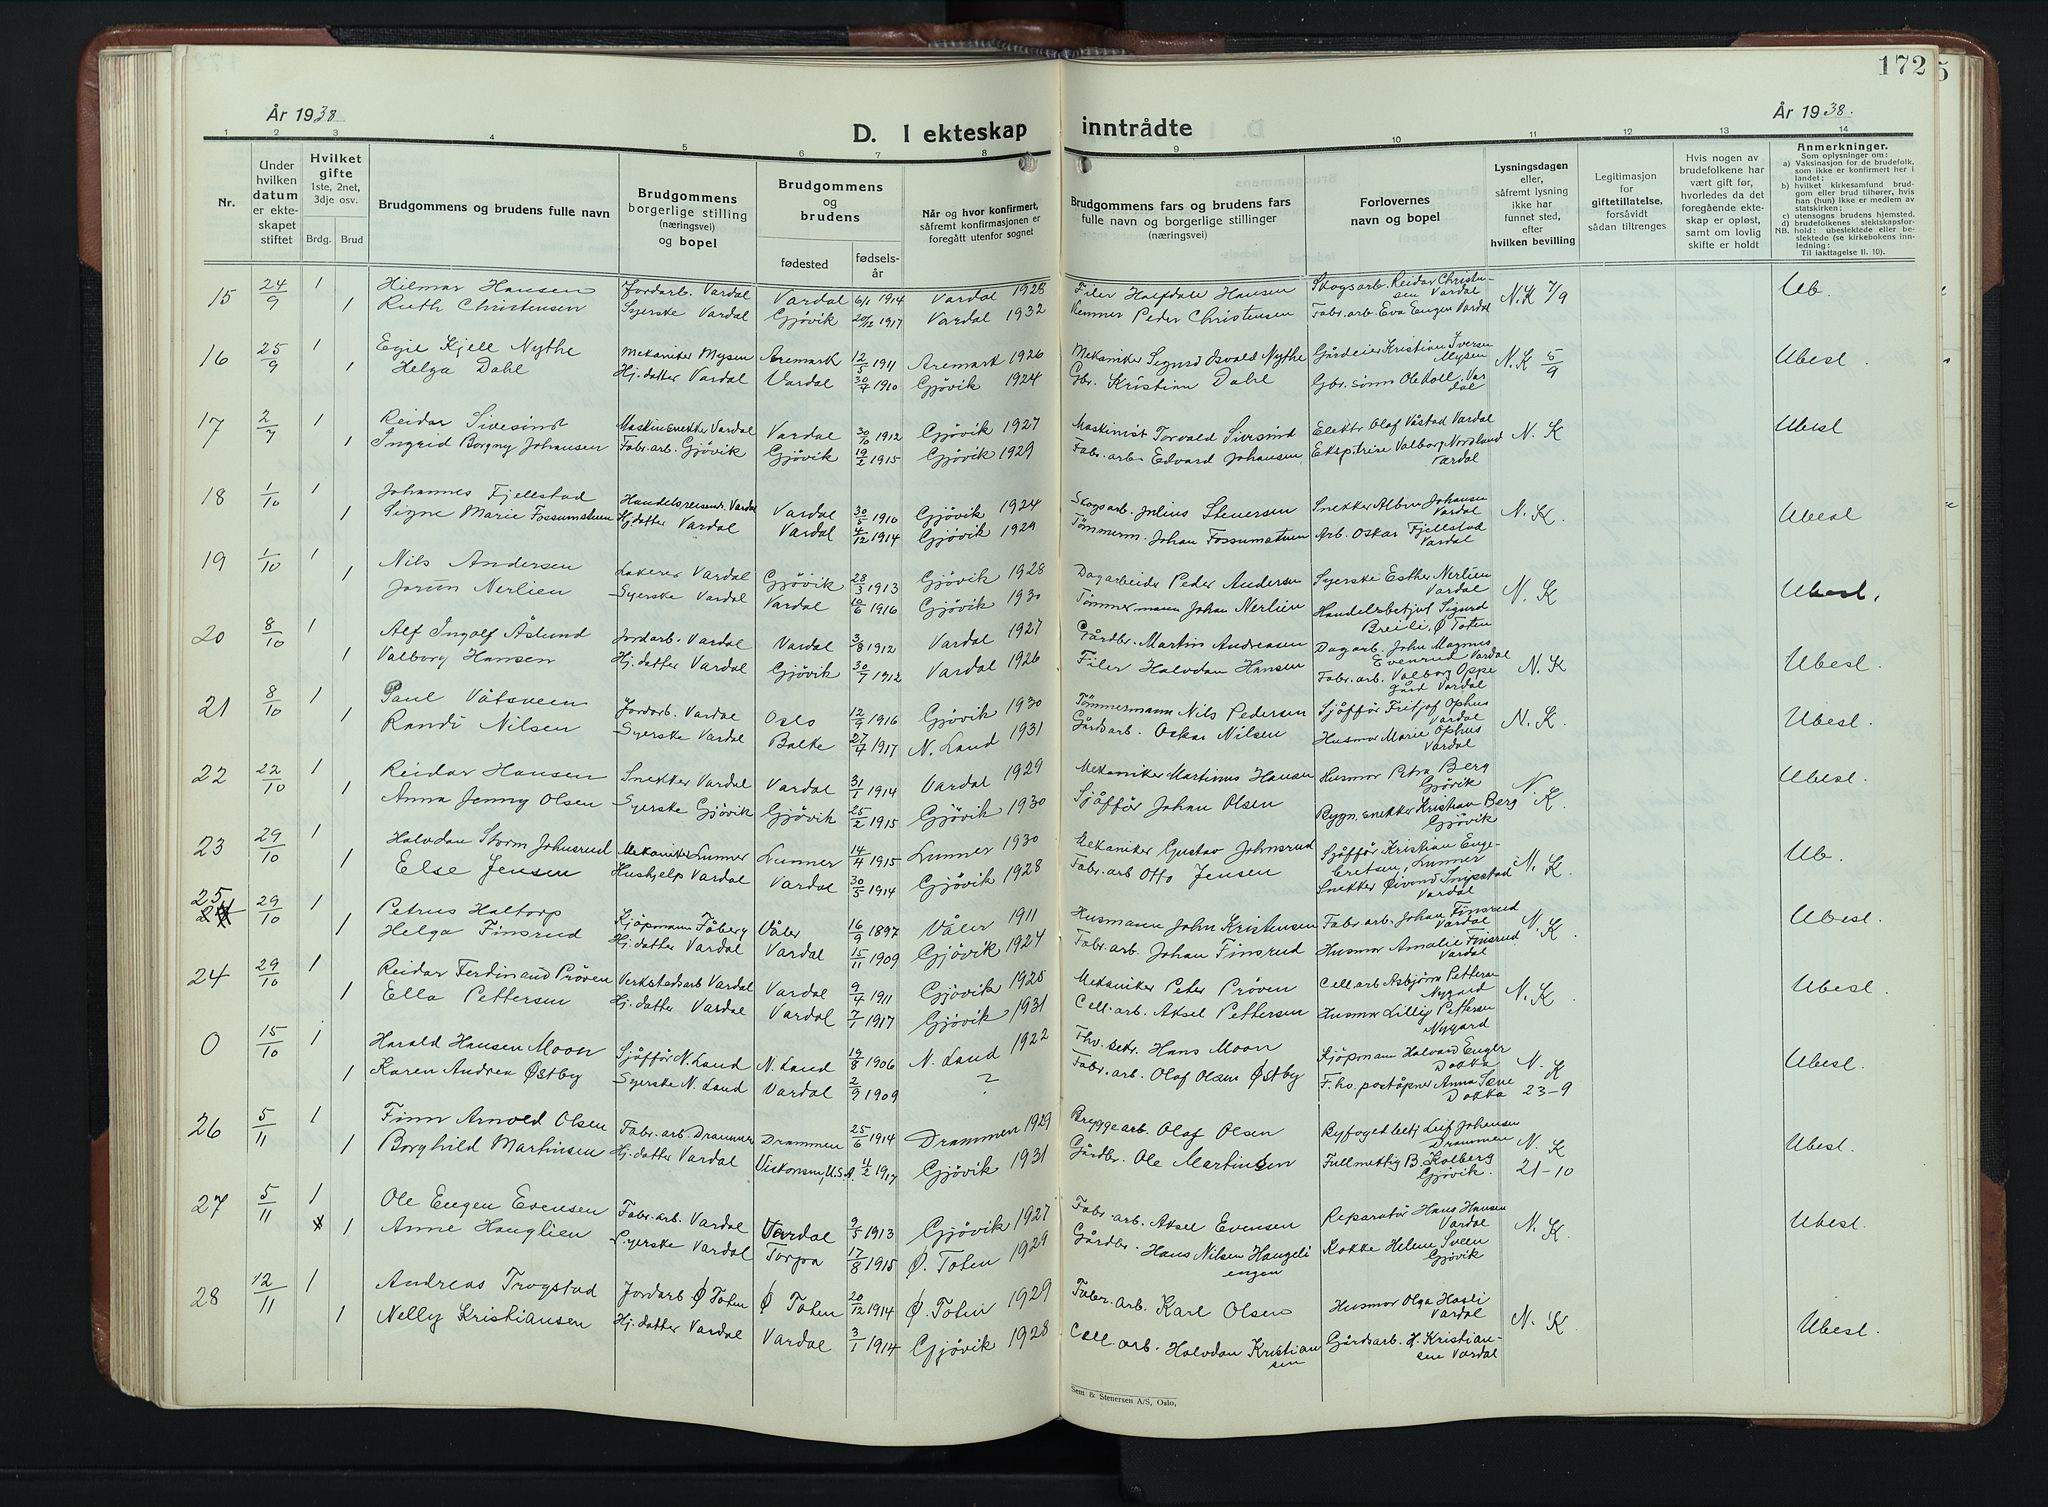 172 5
År 1938
D. I ekteskap inntrådte
År 1938.
1 2 3 4 5 6 7 8 9 10 11 12 13 14
Nr.
Under hvilken datum er ekteskapet stiftet
Hvilket gifte 1ste, 2net, 3dje osv.
Brdg. Brud
Brudgommens og brudens fulle navn
Brudgommens borgerlige stilling (næringsvei) og bopel
Brudgommens og brudens
fødested fødselsår
Når og hvor konfirmert, såfremt konfirmasjonen er foregått utenfor sognet
Brudgommens fars og brudens fars fulle navn og borgerlige stillinger (næringsvei)
Forlovernes navn og bopel
Lysningsdagen eller, såfremt lysning ikke har funnet sted, efter hvilken bevilling
Legitimasjon for giftetillatelse, forsåvidt sådan tiltrenges
Hvis nogen av brudefolkene har vært gift før, hvorledes da det foregående ekteskap er opløst, samt om lovlig skifte er holdt
Anmerkninger.
Som oplysninger om:
a) Vaksinasjon for de brudefolk, som ikke er konfirmert her i landet;
b) hvilket kirkesamfund brudgom eller brud tilhører, hvis han (hun) ikke er medlem av statskirken;
c) utensogns brudens hjemsted.
d) brudefolkenes slektskapsforhold: ubeslektede eller beslektede (se kirkebokens innledning:
NB. Til iakttagelse II. 10).
15 24/9 1 Hilmar Hansen Jordarb. Vardal Vardal 6/1 1914 Vardal 1928 Filer Halfdan Hansen Skogsarb. Reidar Christensen Vardal N.K 7/9 Ub.
1 Ruth Christensen Syerske Vardal Gjøvik 20/12 1917 Vardal 1932 Kemner Peder Christensen Fabr.arb. Eva Engen Vardal
16 25/9 1 Egil Kjell Nythe Mekaniker Mysen Aremark 12/5 1911 Aremark 1926 Mekaniker Sigurd Osvald Nythe Gårdeier Kristian Iversen Mysen N.K 5/9 Ubesl.
1 Helga Dahl Hj.datter Vardal Vardal 30/7 1910 Gjøvik 1924 Gbr. Kristian Dahl Gbr. sønn Ole Koll, Vardal
17 2/7 1 Reidar Sivesind Maskinsnekker Vardal Vardal 30/10 1912 Gjøvik 1927 Maskinist Torvald Sivesind Elektr. Olaf Våstad Vardal N.K Ubesl
1 Ingrid Borgny Johansen Fabr.arb. Gjøvik Gjøvik 19/2 1915 Gjøvik 1929 Fabr.arb. Edvard Johansen Ekspitrise Valborg Nordland Vardal
18 1/10 1 Johannes Fjellstad Handelsreisend. Vardal Vardal 30/5 1910 Gjøvik 1924 Skogsarb. Julius Stenersen Snekker Albin Johansen Vardal N.K. Ubesl
1 Signe Marie Fossumstuen Hj.datter Vardal Vardal 4/12 1914 Gjøvik 1929 Tømmerm. Johan Fossumstuen Arb. Oskar Fjellstad Vardal
19 1/10 1 Nils Andersen Lakerer Vardal Gjøvik 28/3 1913 Gjøvik 1928 Dagarbeider Peder Andersen Syerske Esther Nerlien Vardal N.K Ubesl.
1 Jorun Nerlien Syerske Vardal Vardal 10/6 1916 Gjøvik 1930 Tømmermann Johan Nerlien Handelsbetjut Sigurd Breili, Ø Toten
20 8/10 1 Alf Ingolf Åslund Jordarb. Vardal Vardal 3/8 1912 Vardal 1927 Gårdbr. Martin Andreasen Dagarb. John Magnus Evenrud Vardal N.K Ubesl.
1 Valborg Hansen Hj.datter Vardal Gjøvik 30/7 1912 Vardal 1926 Filer Halvdan Hansen Fabr.arb. Valborg Oppegård Vardal
21 8/10 1 Paul Våtsveen Jordarb. Vardal Oslo 12/9 1916 Gjøvik 1930 Tömmermann Nils Pedersen Sjåffør Fritjof Ophus Vardal N.K. Ubesl.
1 Randi Nilsen Syerske Vardal Balke 27/4 1917 N. Land 1931 Gårdsarb. Oskar Nilsen Husmor Marie Ophus Vardal
22 22/10 1 Reidar Hansen Snekker Vardal Vardal 31/1 1914 Vardal 1929 Mekaniker Martinus Hansen Husmor Petra Berg Gjøvik N.K. Ubesl.
1 Anna Jenny Olsen Syerske Gjøvik Gjøvik 25/2 1915 Gjøvik 1930 Sjåffør Johan Olsen Bygn.snekker Kristian Berg Gjøvik
23 29/10 1 Halvdan Storm Johnsrud Mekaniker Lunner Lunner 14/4 1915 Lunner 1930 Mekaniker Gustav Johnsrud Sjåffør Kristian Engebretsen, Lunner N.K. Ub.
1 Else Jensen Hushjelp Vardal Vardal 30/5 1914 Gjøvik 1928 Fabr.arb Otto Jensen Snekker Øivind Snipstad Vardal
25 24 29/10 1 Petrus Haltorp Kjøpmann Fåberg Våler 16/9 1897 Våler 1911 Husmann John Kristensen Fabr.arb. Johan Finsrud Vardal N.K. Ubesl.
1 Helga Finsrud Hj.datter Vardal Vardal 15/11 1909 Gjøvik 1924 Fabr.arb. Johan Finsrud Husmor Amalie Finsrud Vardal
24 29/10 1 Reidar Ferdinand Prøven Verkstedsarb Vardal Vardal 9/4 1911 Gjøvik 1925 Mekaniker Peter Prøven Cell.arb Asbjørn Pettersen Nygard N.K. Ubesl.
1 Ella Pettersen Hj.datter Vardal Vardal 7/1 1917 Gjøvik 1931 Cell.arb. Aksel Pettersen Husmor Lillig Pettersen Nygard
0 15/10 1 Harald Hansen Moon Sjåffør N. Land N. Land 19/8 1906 N. Land 1922 Fhv. sekr. Hans Moon Kjøpmann Halvard Enger Dokka N.K 23-9 Ubesl.
1 Karen Andrea Østby Syerske N. Land Vardal 2/9 1909 ? Fabr.arb. Olaf Olsen Østby F.hv. poståpner Anna Sæve Dokka
26 5/11 1 Finn Arnold Olsen Fabr.arb. Drammen Drammen 25/6 1914 Drammen 1929 Bryggearb. Olaf Olsen Byfogedbetj Leif Johansen Drammen N.K 21-10 Ubesl.
1 Borghild Martinsen Hj.datter Vardal Viskonsin, U.S.A. 11/2 1917 Gjøvik 1931 Gårdbr. Ole Martinsen Fullmettig B. Kolberg Gjøvik.
27 5/11 1 Ole Engen Evensen Fabr.arb. Vardal Vardal 9/5 1913 Gjøvik 1927 Fabr.arb. Aksel Evensen Reparatør Hans Hansen Vardal N.K. Ubesl.
1 Anne Hauglien Syerske Vardal Torpa 17/8 1915 Ø. Toten 1929 Gårdbr. Hans Nilsen Haugeliengen Kokke Helene Sveen Gjøvik
28 12/11 1 Andreas Trogstad Jordarb Ø Toten Ø Toten 20/12 1914 Ø. Toten 1929 Fabr.arb. Karl Olsen Husmor Olga Hasli Vardal N.K. Ubesl.
1 Nelly Kristiansen Hj.datter Vardal Vardal 3/1 1914 Gjøvik 1928 Cell.arb. Halvdan Kristiansen Gårdsarb. H. Kristiansen Vardal
Sem & Stenersen A/S, Oslo.